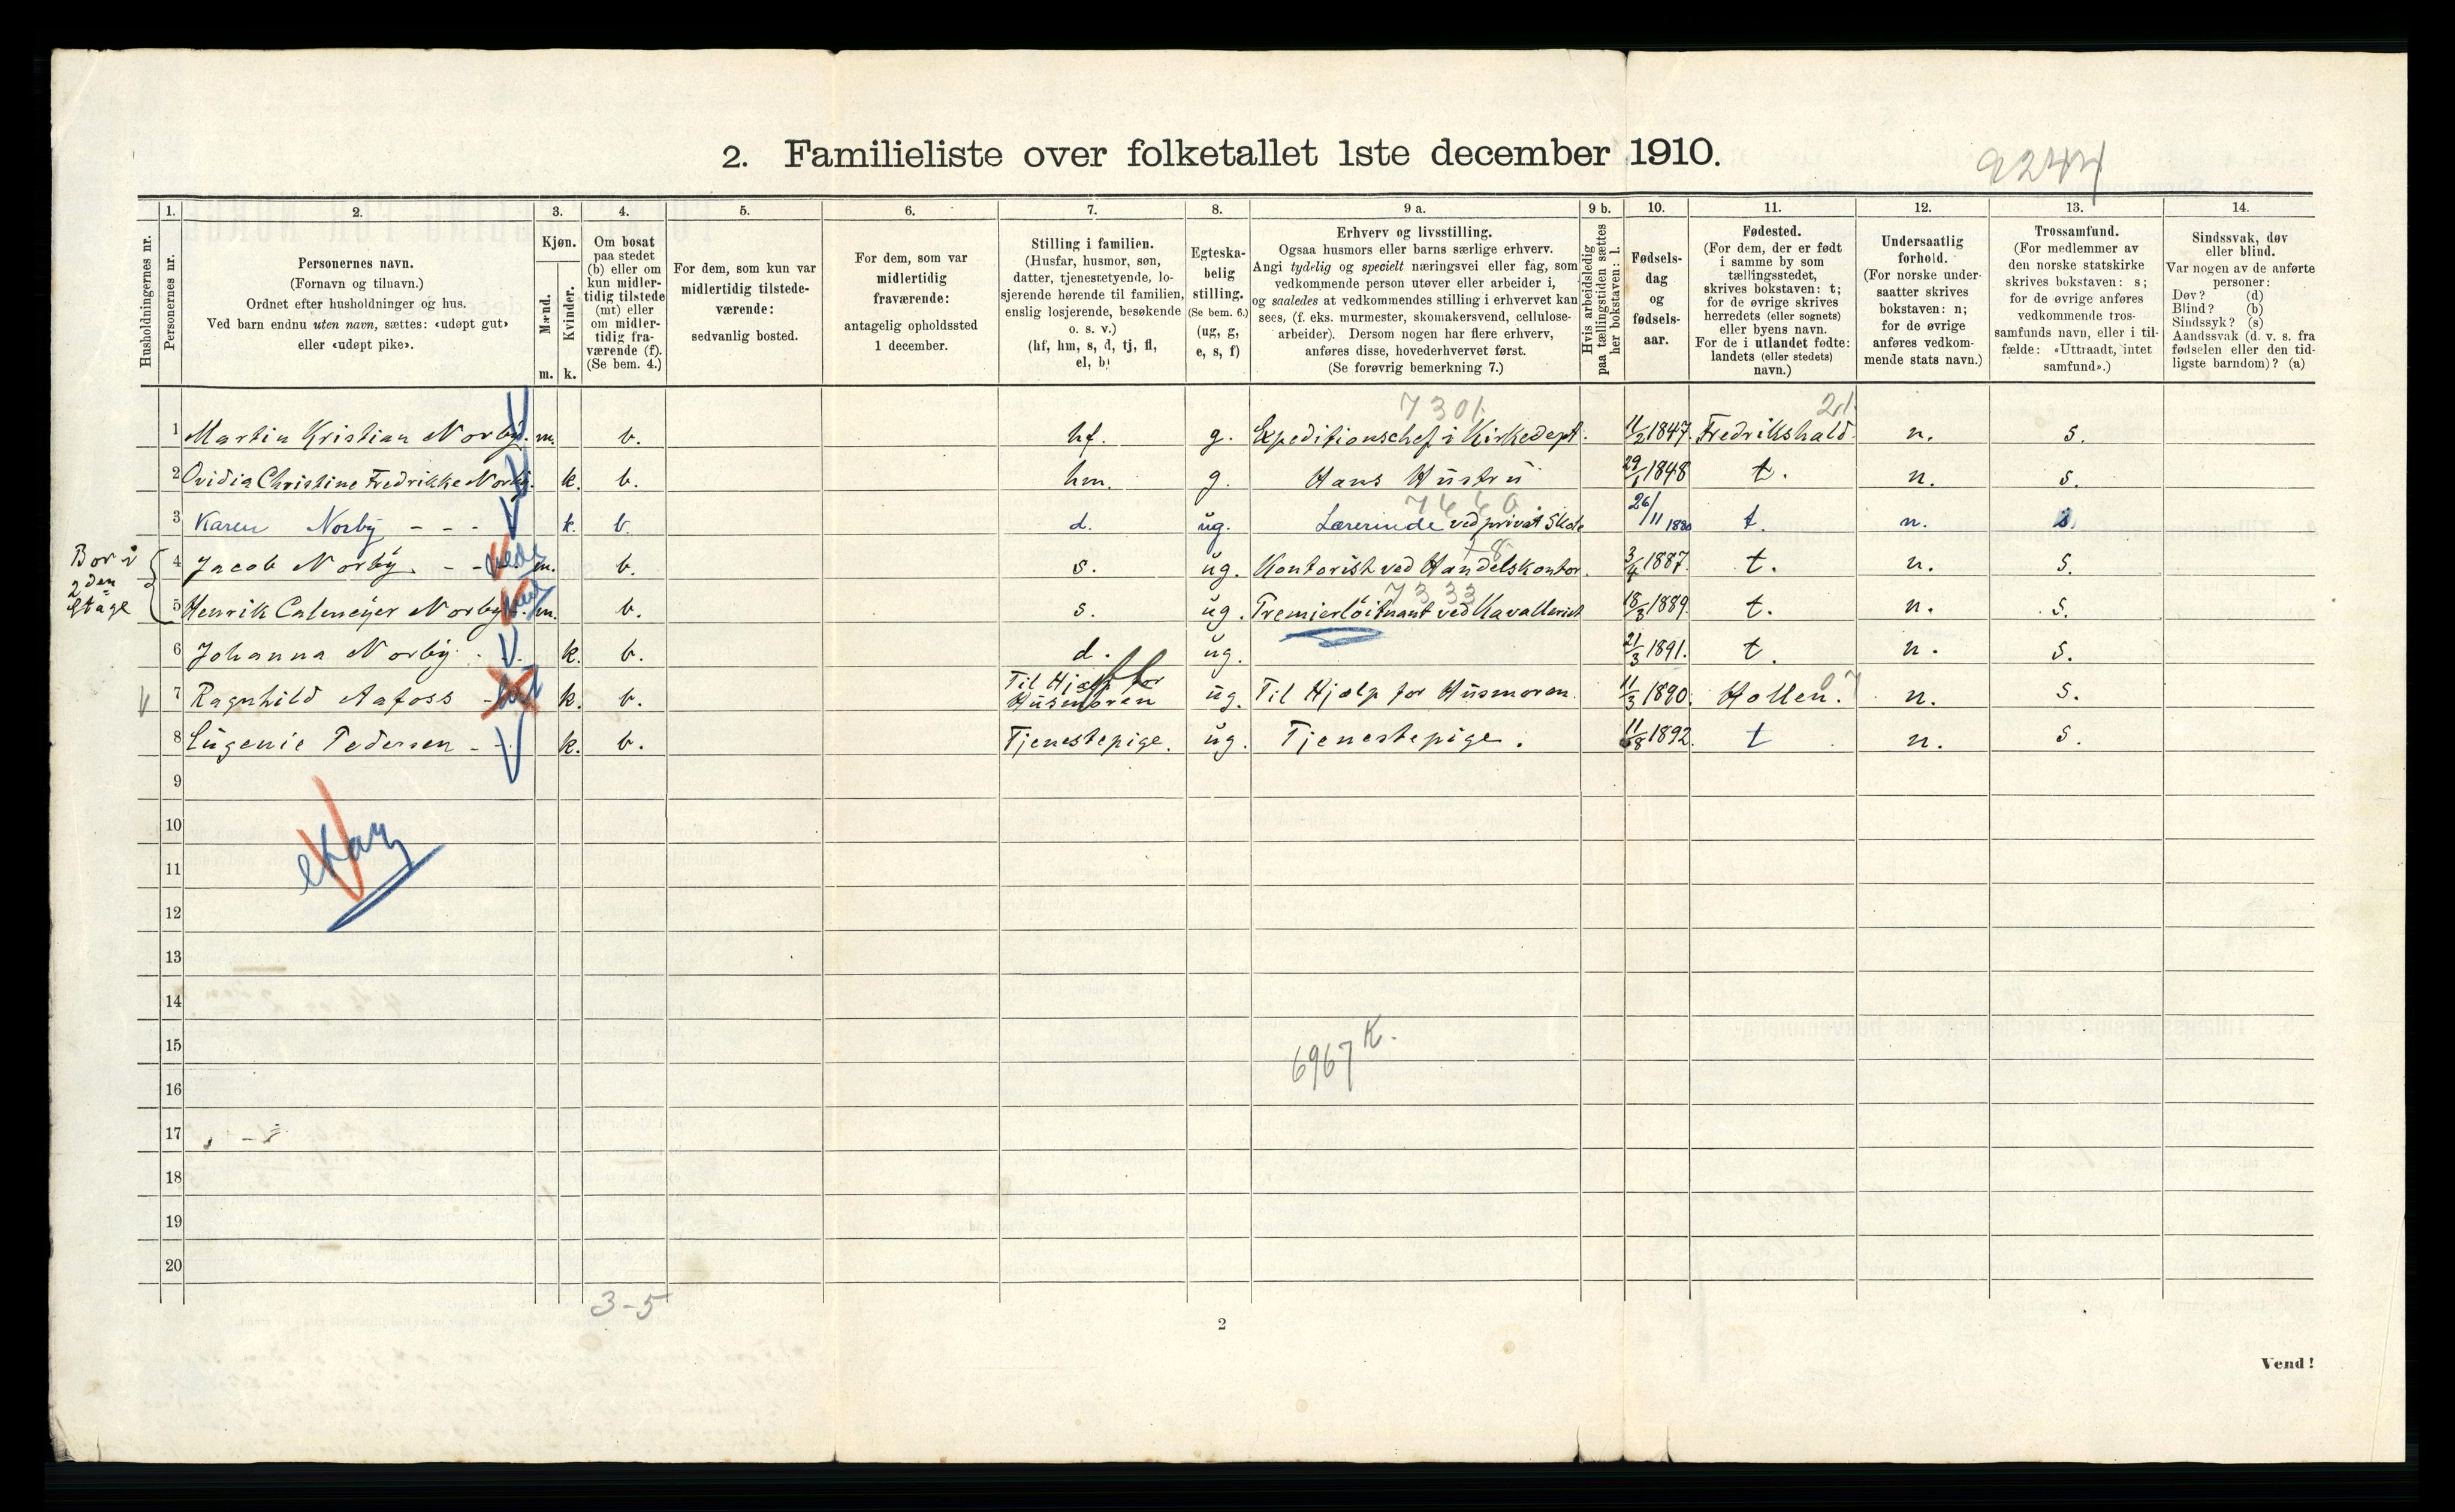 2. Familieliste over folketallet 1ste december 1910.
9244
Husholdningernes nr.
1.
Personernes nr.
2.
Personernes navn.
(Fornavn og tilnavn.)
Ordnet efter husholdninger og hus.
Ved barn endnu uten navn, sættes: «udøpt gut»
eller «udøpt pike».
3.
Kjøn.
Mænd.
Kvinder.
m. k.
4.
Om bosat
paa stedet
(b) eller om
kun midler-
tidig tilstede
(mt) eller
om midler-
tidig fra-
værende (f).
(Se bem. 4.)
5.
For dem, som kun var
midlertidig tilstede-
værende:
sedvanlig bosted.
6.
For dem, som var
midlertidig
fraværende:
antagelig opholdssted
1 december.
7.
Stilling i familien.
(Husfar, husmor, søn,
datter, tjenestetyende, lo-
sjerende hørende til familien,
enslig losjerende, besøkende
o. s. v.)
(hf, hm, s, d, tj, fl,
el, b)
8.
Egteska-
belig
stilling.
(Se bem. 6.)
(ug, g,
e, s, f)
9 a.
Erhverv og livsstilling.
Ogsaa husmors eller barns særlige erhverv.
Angi tydelig og specielt næringsvei eller fag, som
vedkommende person utøver eller arbeider i,
og saaledes at vedkommendes stilling i erhvervet kan
sees, (f. eks. murmester, skomakersvend, cellulose-
arbeider). Dersom nogen har flere erhverv,
anføres disse, hovederhvervet først.
(Se forøvrig bemerkning 7.)
9 b.
Hvis arbeidsledig
paa tællingstiden sættes
her bokstaven: l.
10.
Fødsels-
dag
og
fødsels-
aar.
11.
Fødested.
(For dem, der er født
i samme by som
tællingsstedet,
skrives bokstaven: t;
for de øvrige skrives
herredets (eller sognets)
eller byens navn.
For de i utlandet fødte:
landets (eller stedets)
navn.)
12.
Undersaatlig
forhold.
(For norske under-
saatter skrives
bokstaven: n;
for de øvrige
anføres vedkom-
mende stats navn.)
13.
Trossamfund.
(For medlemmer av
den norske statskirke
skrives bokstaven: s;
for de øvrige anføres
vedkommende tros-
samfunds navn, eller i til-
fælde: «Uttraadt, intet
samfund».)
14.
Sindssvak, døv
eller blind.
Var nogen av de anførte
personer:
Døv? (d)
Blind? (b)
Sindssyk? (s)
Aandssvak (d. v. s. fra
fødselen eller den tid-
ligste barndom)? (a)
7301. 21
1 Martin Kristian Norby. m. b. hf. g. Expeditionschef i Kirkedept. 11/2 1847. Fredrikshald. n. s.
2 Ovidia Christine Fredrikke Norby. k. b. hm. g. Hans Hustru 29/1 1848 t. n. s.
3 Karen Norby - - - k. b. d. ug. Lærerinde ved privat Skole 26/11 1880 t. n. s.
Bor i
2den
Etage
4 Jacob Norby. - - m. b. s. ug. Kontorist ved Handelskontor. 3/4 1887. t. n. s.
7333
5 Henrik Calmeyer Norby m. b. s. ug. Premierløitnant ved Kavalleriet 18/3 1889. t. n. s.
6 Johanna Norby. k. b. d. ug. 21/3 1891. t. n. s.
7 Ragnhild Aafoss - k. b. Til Hjælp for Husmoren ug. Til Hjælp for Husmoren. 11/3 1890. Hollen. 07 n. s.
8 Eugenie Pedersen - - k. b. Tjenestepige. ug. Tjenestepige. 11/8 1892. t n. s.
9
10
11
12
13
14
15
6967 K.
16
17
18
19
20
3-5
2
Vend!